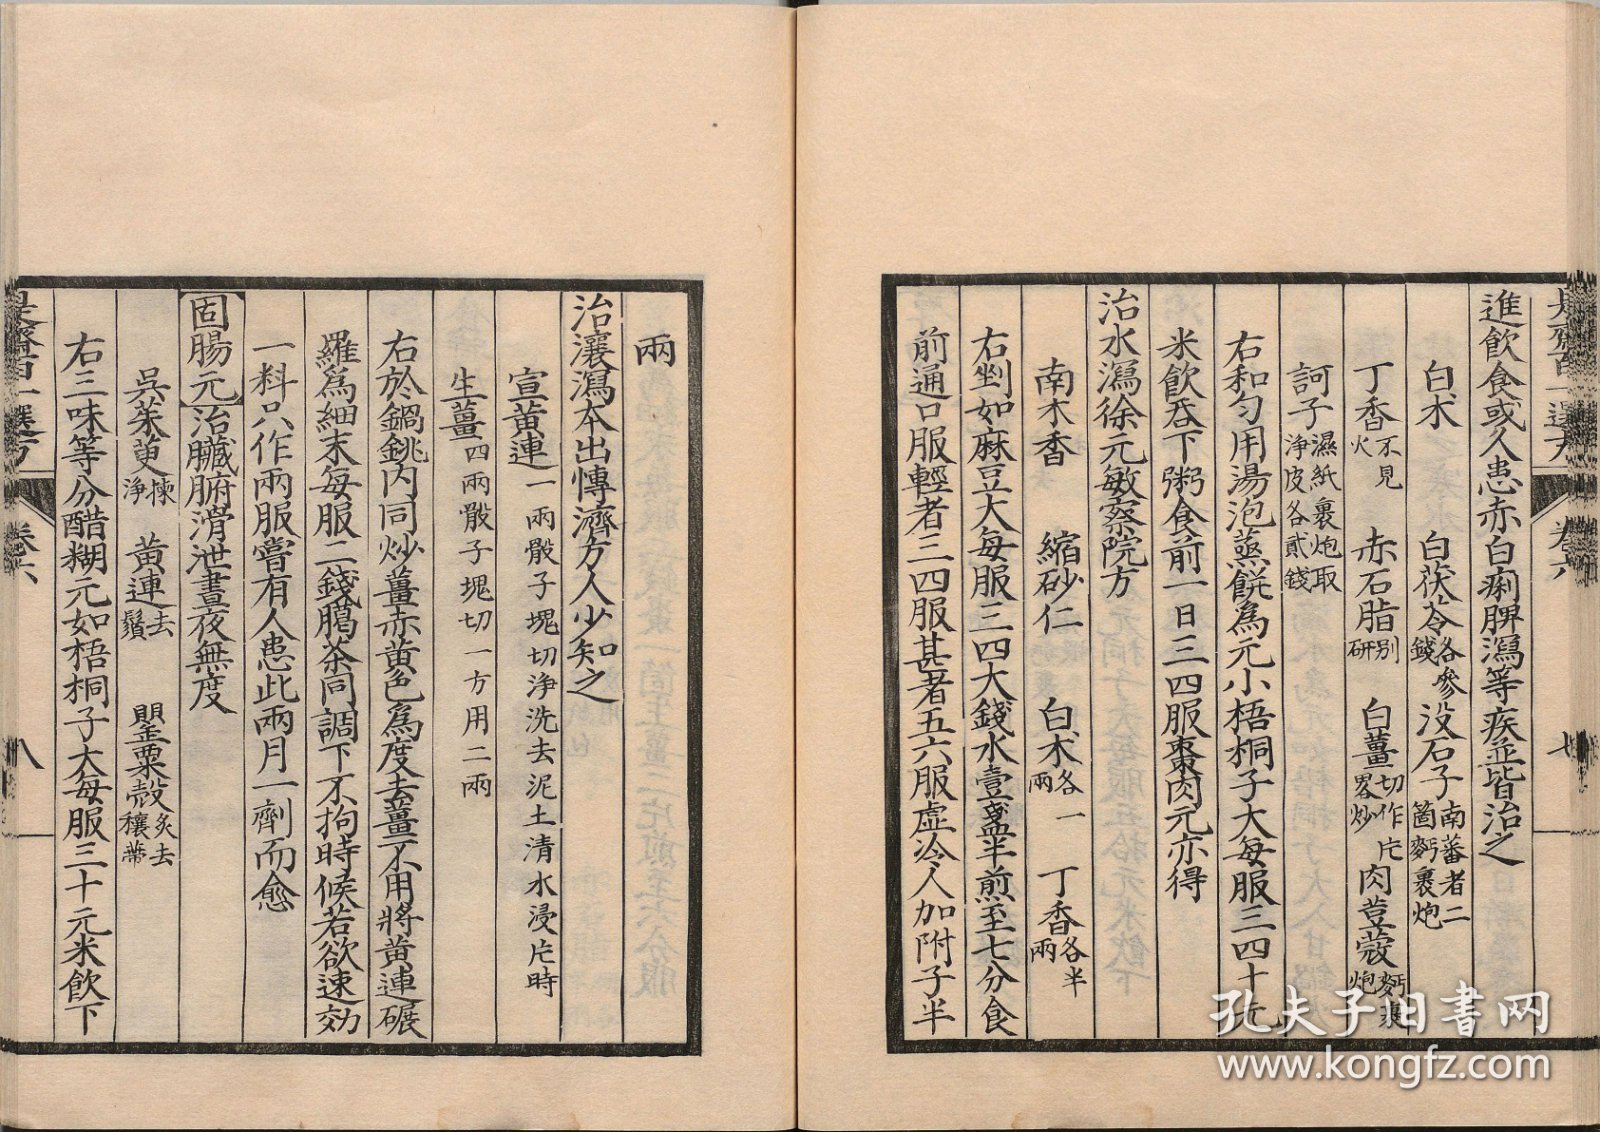 進飲食或久患赤白痢脾瀉等疾並皆治之
白朮 白茯苓各叁錢 没石子南蕃者二箇麪裹炮
丁香不見火 赤石脂别研 白薑切作片畧炒 肉荳蔻麪裹炮
訶子濕紙裹炮取浄皮各貳錢
右和匀用湯泡蒸餅為元小梧桐子大每服三四十元
米飲吞下粥食前一日三四服棗肉元亦得
治水瀉徐元敏察院方
南木香 縮砂仁 白朮各一兩 丁香各半兩
右剉如麻豆大每服三四大錢水壹盞半煎至七分食
前通口服輕者三四服甚者五六服虚冷人加附子半
兩
治瀼瀉本出愽濟方人少知之
宣黄連一兩骰子塊切浄洗去泥土清水浸片時
生薑四兩骰子塊切一方用二兩
右於鍋銚内同炒薑赤黄色為度去薑不用將黄連碾
羅為細末每服二錢臈茶同調下不拘時候若欲速効
一料只作兩服嘗有人患此兩月一劑而愈
固腸元治臟腑滑泄晝夜無度
吳茱萸揀浄 黄連去鬚 罌粟殻炙去穰蔕
右三味等分醋糊元如梧桐子大每服三十元米飲下
是齋百一選方 卷六 八
孔夫子旧书网
www.kongfz.com